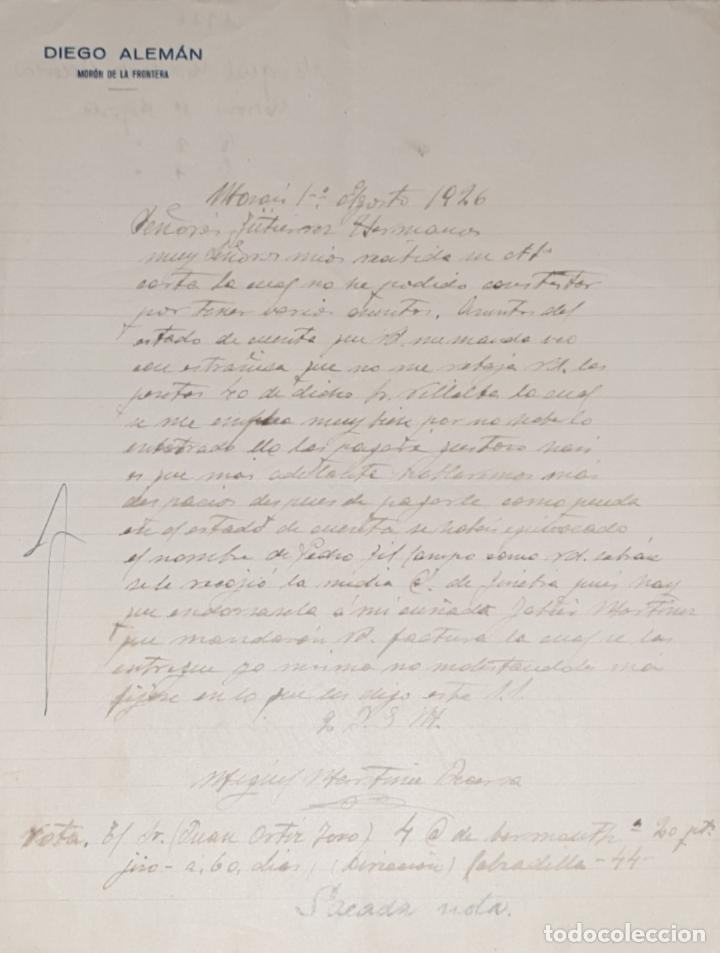 DIEGO ALEMÁN
MORÓN DE LA FRONTERA
Moron 1º Agosto 1926
Señores Gutierrez Hermanos
muy Señores mios recibida su Atª
carta la cual no he podido contestar
por tener varios asuntos. Asuntos del
estado de cuenta que Vd. me manda veo
con estrañesa que no me rebaja Vd. las
pesetas 40 de dicho Sr. Villalba la cual
se me emplea muy bien por no haberlo
las pagaré gustoso
es que mas adelante hablaremos mas
despacio despues de pagarle como queda
en el estado de cuenta se habrá equivocado
el nombre de Pedro Gil Campo como Vd. sabrán
se le recojió la media @. de Ginebra pues hay
que endorsarsela á mi cuñado Martinez
que mandarán Vd. factura la cual se las
entregue yo mismo no molestandoles mas
fijese en lo que les digo este S.S.
Q. B. S. M.
Miguel Martinez
Nota. El Sr. (Juan Ortiz Toro) 4 @ de bermouth a 20 pts.
jiro - a. 60. dias, (Dirección) - 44 -
Sacada nota.
todocoleccion
todocoleccion.net